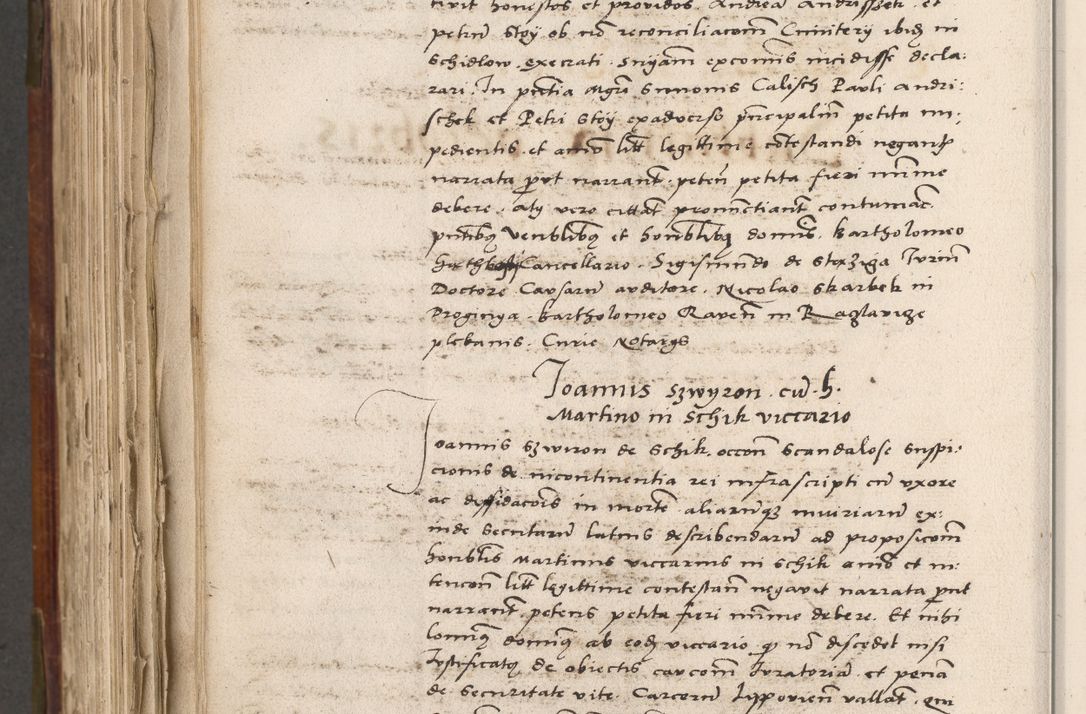 tivit honestos et providos Andream Andrisschek et
petrum Stoy ob non reconciliacionem Cimiterij ibidem in
Schidlow execrati. Sniam excomis incidisse decla:
rari. In pntia Mgri Simonis Calisch Pauli Andri:
schek et Petri Stoy ex adverso principalium petita im:
pedientis et animo litt legittime contestandi negantis
narrata prout narrant. peten petita fieri minime
debere. Alij vero cittati pronunctiant contumac
pntibus venblibus et honblibus dominis Bartholomeo
Cancellario. Sigismundo de Stezyza Jurium
Doctore Causarum auditore. Nicolao Skarbek in
Proginya. Bartholomeo Raven in Raglavize
plebanis. Curie Notarys
Joannis Szwyron cum h.
Martino in Schik viccario
Joannis Szwiron de Schik occon scandalose suspi:
cionis de incontinentia rei infrascripti cum uxore
ac diffidacois in morte aliarumque iniuriarum ex:
inde secutarum latius describendarum ad proposicom
honblis Martinus viccarius in Schik animo et in:
tencom litt legittime contestan negavit narrata prout
narrant. petens petita fieri minime debere. Et nihi
lominus dominus ab eodem viccario q non discedet nisi
Justificatus de obiectis caucom Juratoriam et penam
de securitate vite. Carcerum Lippovien vallat. qm